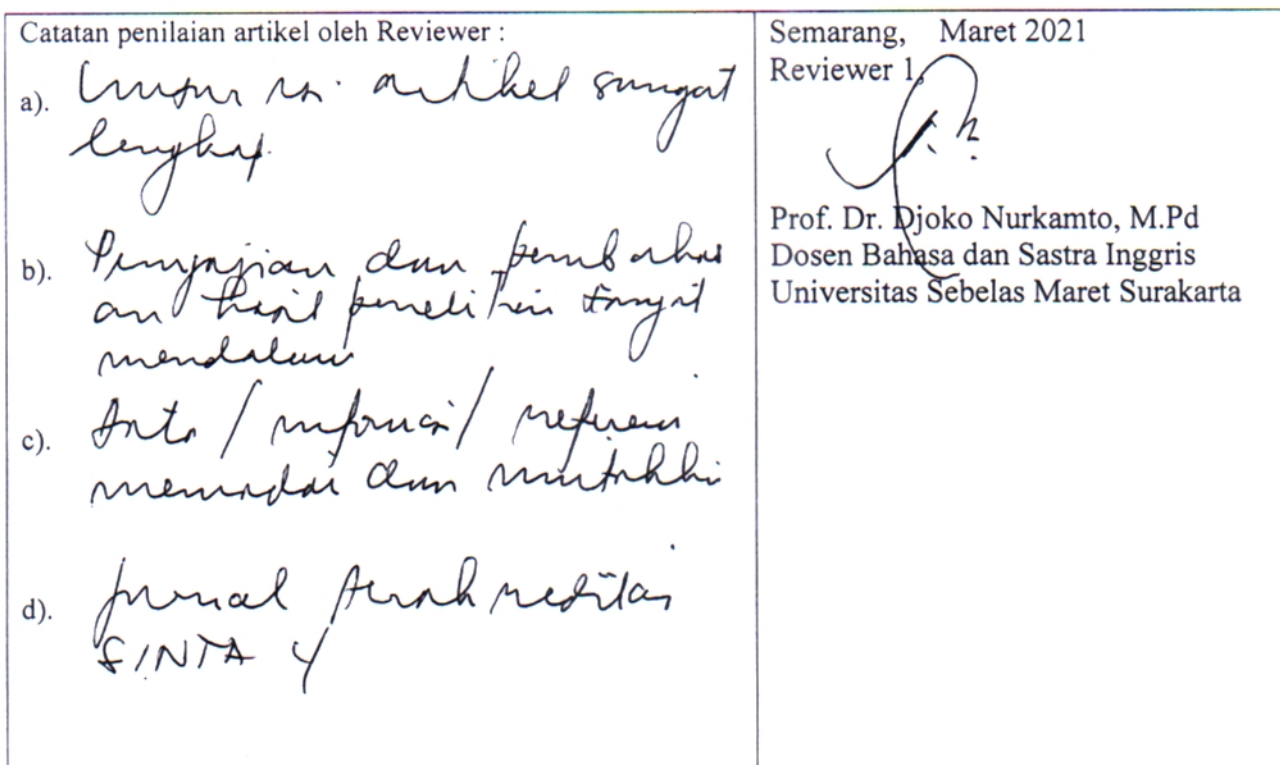 Catatan penilaian artikel oleh Reviewer :
a). Unsur isi artikel sangat
lengkap.
b). Penyajian dan pembahas
an hasil penelitian sangat
mendalam
c). Data / informasi / referensi
memadai dan mutakhir
d). Jurnal terakreditasi
SINTA 4
Semarang, Maret 2021
Reviewer 1,
Prof. Dr. Djoko Nurkamto, M.Pd
Dosen Bahasa dan Sastra Inggris
Universitas Sebelas Maret Surakarta